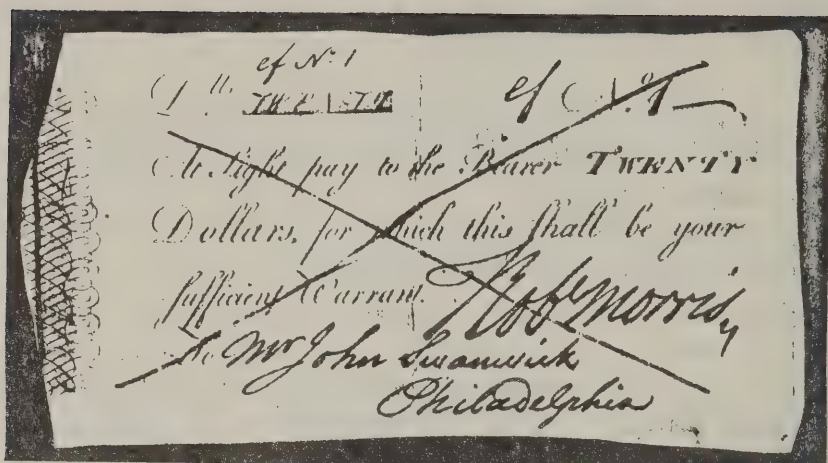 ef No. 1
Dlls. TWENTY ef No. 1
At Sight pay to the Bearer TWENTY
Dollars, for which this shall be your
sufficient Warrant.
Robt Morris
To Mr John Swanwick
Philadelphia